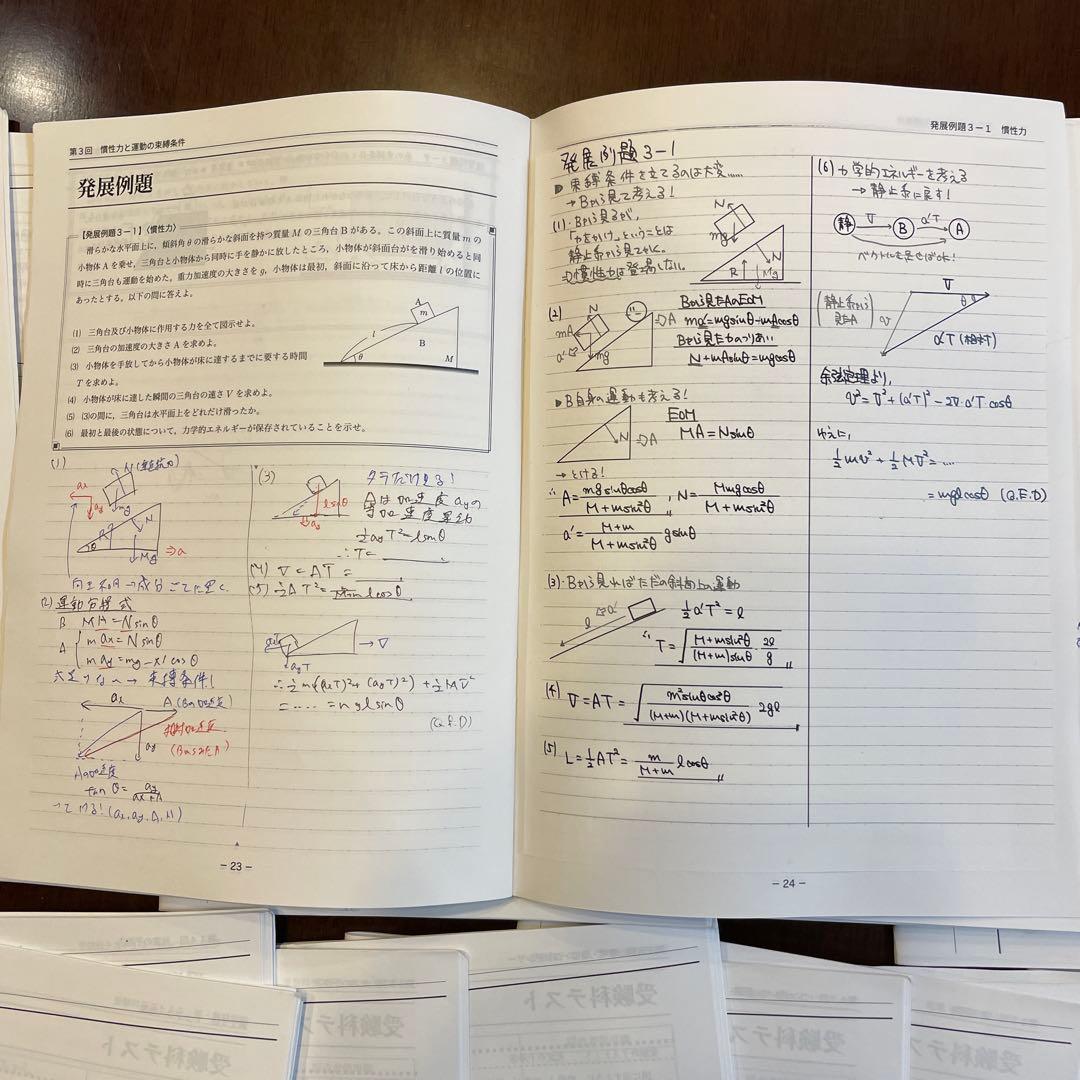 第3回 慣性力と運動の束縛条件
発展例題
【発展例題3−1】(慣性力)
滑らかな水平面上に，傾斜角θの滑らかな斜面を持つ質量Mの三角台Bがある。この斜面上に質量mの
小物体Aを乗せ，三角台と小物体から同時に手を静かに放したところ，小物体が斜面台がを滑り始めると同
時に三角台も運動を始めた。重力加速度の大きさをg，小物体は最初，斜面に沿って床から距離lの位置に
あったとする。以下の問に答えよ。
(1) 三角台及び小物体に作用する力を全て図示せよ。
(2) 三角台の加速度の大きさAを求めよ。
(3) 小物体を手放してから小物体が床に達するまでに要する時間
Tを求めよ。
(4) 小物体が床に達した瞬間の三角台の速さVを求めよ。
(5) (3)の間に，三角台は水平面上をどれだけ滑ったか。
(6) 最初と最後の状態について，力学的エネルギーが保存されていることを示せ。
A
m
l
B
θ
M
(1)
N
mg
N
Mg
⇒a
(2) 運動方程式
B MA=Nsinθ
A m ax=Nsinθ
m ay=mg−Ncosθ
→束縛条件!
ax
A(Bの加速度)
相対加速度
ay
Aの加速度
tanθ=ay/(ax+A)
(ax,ay,A,N)
(3)
lsinθ
ay
Aは加速度ayの
等加速度運動
½ayT²=lsinθ
∴T=
(4) V=AT=
(5) ½AT²= lcosθ
ayT
→V
∴½m((axT)²+(ayT)²)+½MV²
=‥‥=mglsinθ
(Q.E.D)
− 23 −
発展例題3−1 慣性力
発展例題3-1
束縛条件を立てるのは大変……
→Bから見て考える!
(1)・Bから見るが，
「力をかけ」ということは
静止系から見てかく。
⇒慣性力は登場しない。
N
mg
N
R
Mg
(2)
N
mA
a'
mg
⇒A
Bから見たAのEOM
ma'=mgsinθ−mAcosθ
Bから見た力のつりあい
N+mAsinθ=mgcosθ
B自身の運動も考える!
N
⇒A
EOM
MA=Nsinθ
→とける!
∴A=mgsinθcosθ/(M+msin²θ)，N=Mmgcosθ/(M+msin²θ)
a'=(M+m)/(M+msin²θ) gsinθ
(3)・Bから見ればただの斜面上の運動
l
a'
½a'T²=l
∴T=√((M+msin²θ)/((M+m)sinθ)・2l/g)
(4) V=AT=√(m²sinθcos²θ/((M+m)(M+msin²θ))・2gl)
(5) L=½AT²=m/(M+m) lcosθ
(6) 力学的エネルギーを考える
→静止系に戻す!
静 V B a'T A
ベクトルを足せばOK!
静止系から
見たA
V
θ
v
a'T(相対)
余弦定理より，
v²=V²+(a'T)²−2V・a'T cosθ
ゆえに，
½mv²+½MV²=‥‥
=mglcosθ (Q.E.D)
− 24 −
受験科テスト
受験科テスト
受験科テスト
受験科テスト